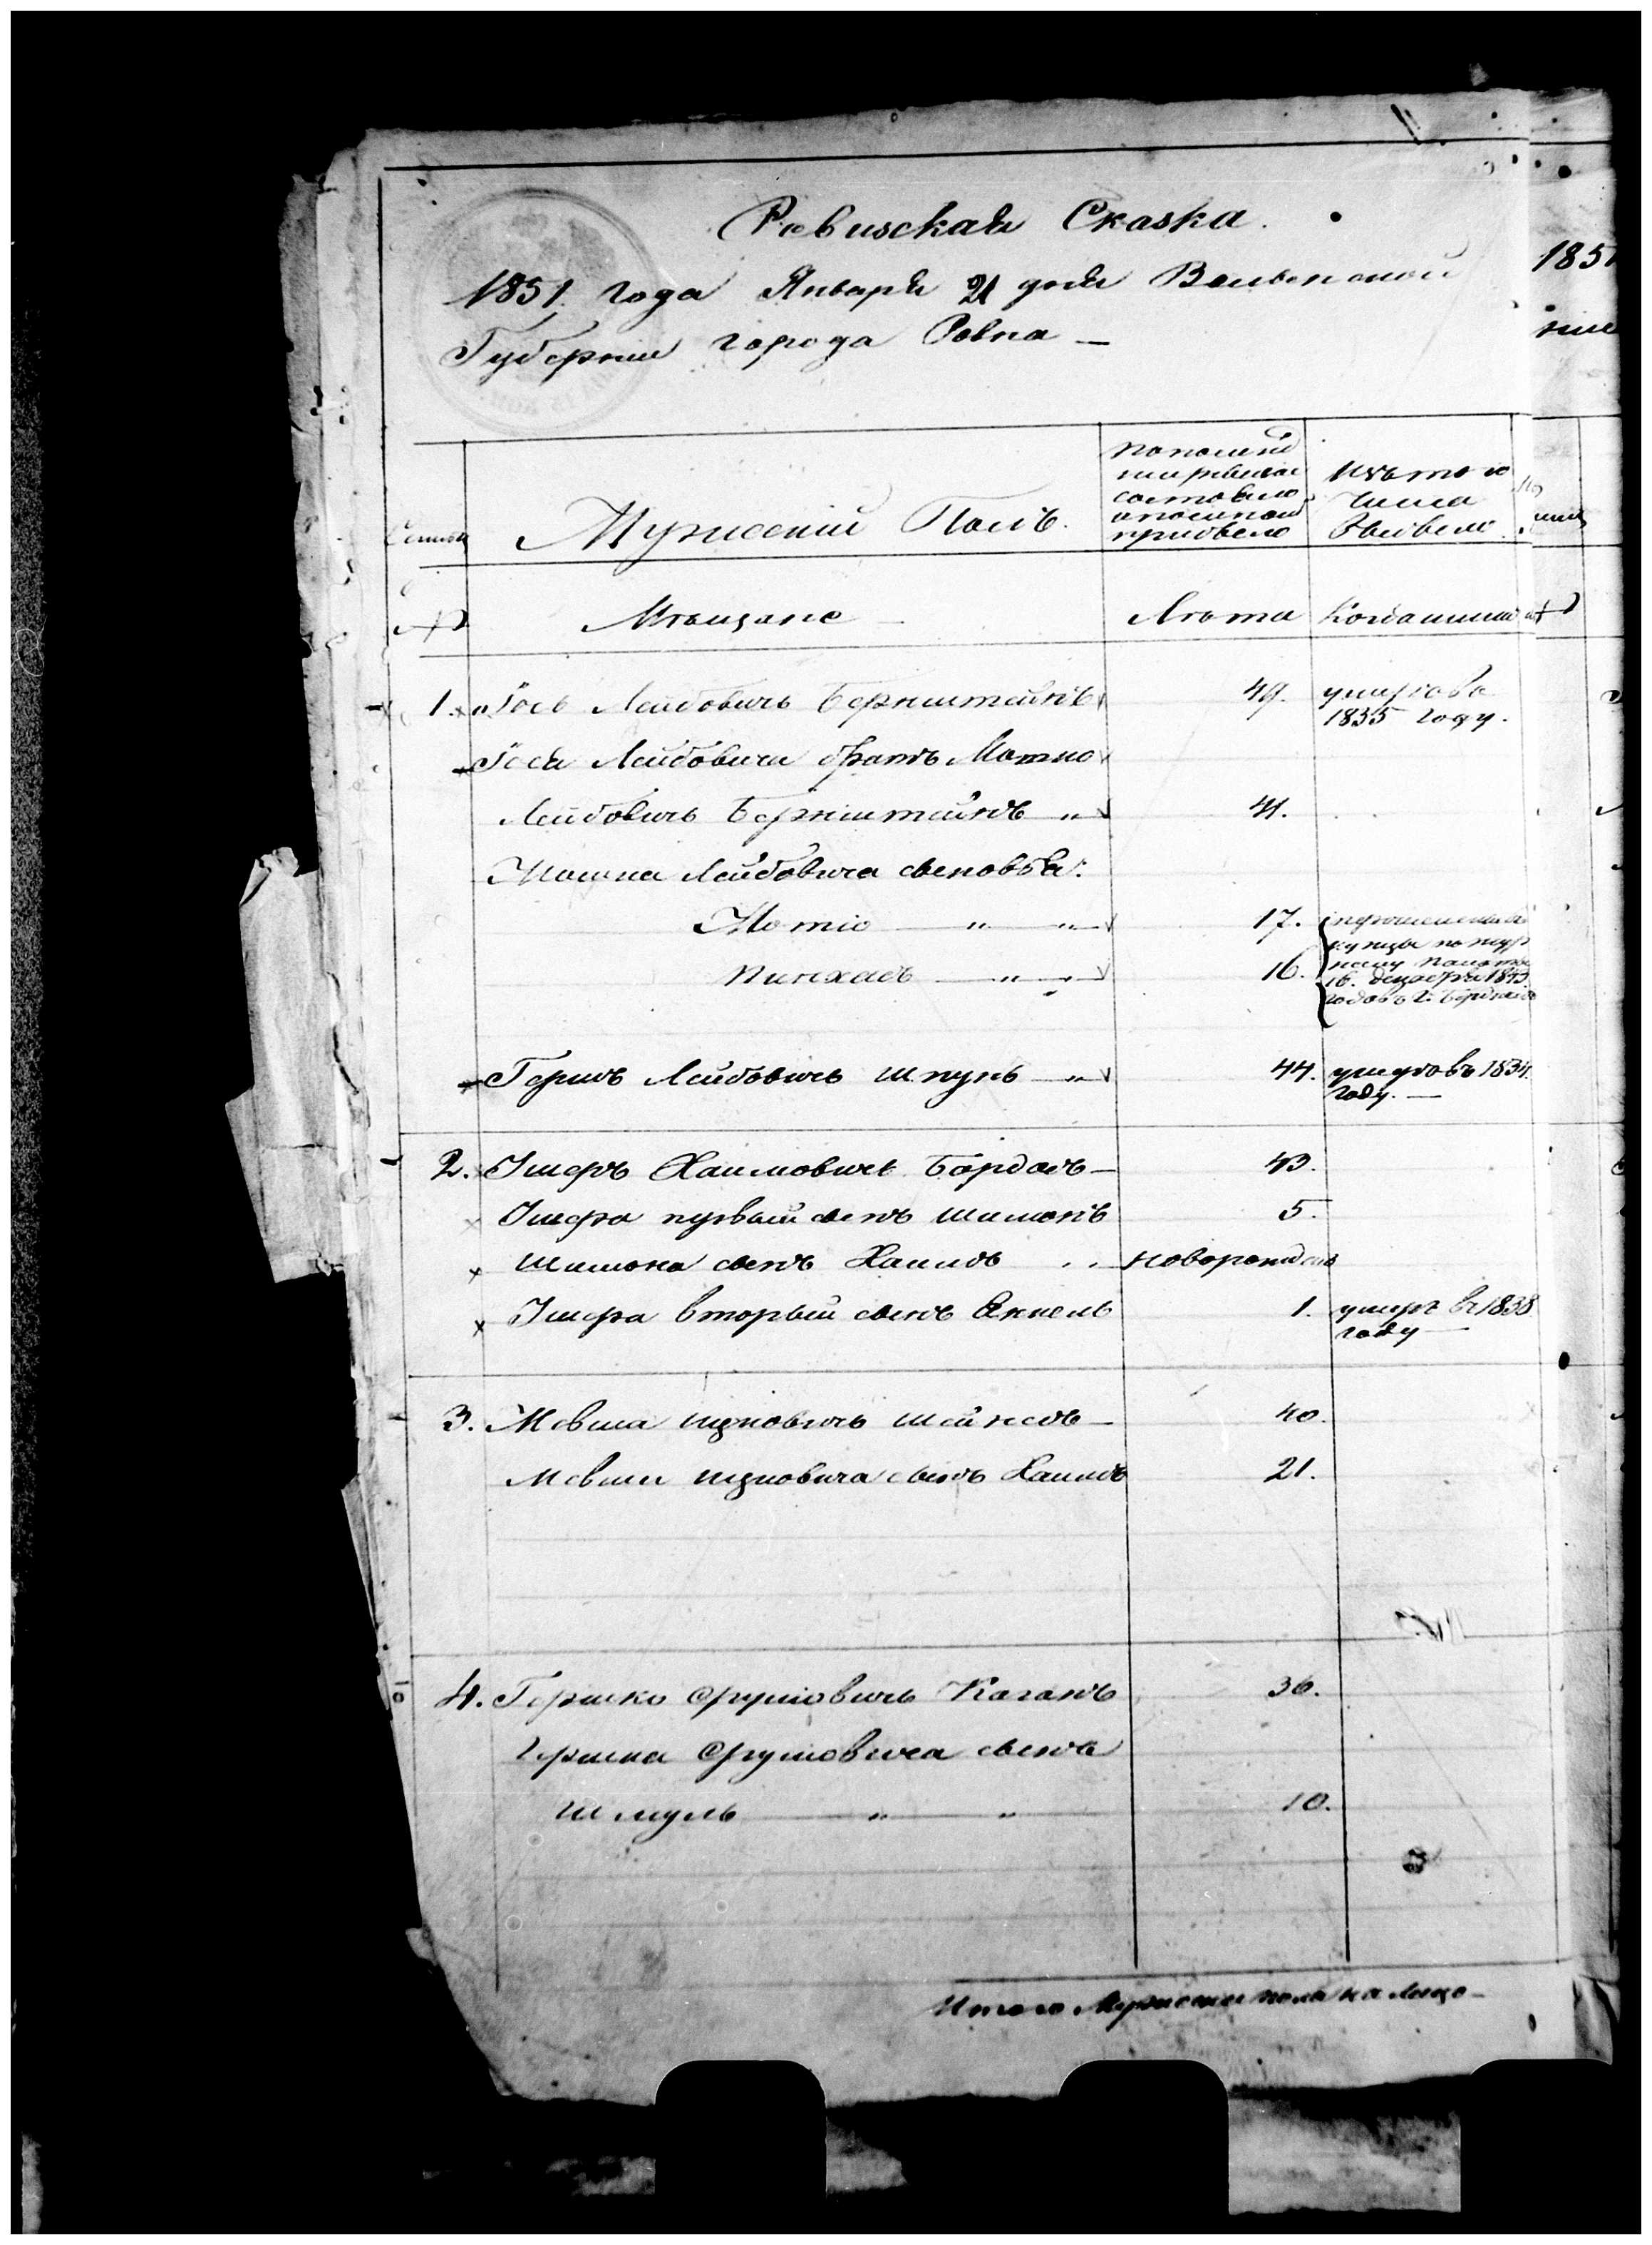 Ревизская Сказка.
1851 года Января 21 дня Волынской
Губернии города Ровна —
1851
Семьи
Мужеский Полъ.
Изъ того
числа
выбыло
№
Мѣщане
Лѣта
Когда имянно
1. Іось Лейбовичь Бернштейнъ 49. умер въ
1835 году.
Іося Лейбовича братъ Мошко
Лейбовичь Бернштейнъ — " 41.
Мошка Лейбовича сыновья:
Мотіо — " — " 17.
Пинхасъ — " — " 16.
16. декабря
Гершъ Лейбовичь Шпунь — " 44. умер въ 1834.
году. —
2. Ишеръ Хаимовичь Бордасъ — 43.
Ишера первый сынъ Шимонъ 5.
Шимона сынъ Хаимъ новорожден
Ишера вторый сынъ Анкель 1. умеръ въ 1838
году —
3. Мовша Ицковичь Шейнесъ — 40.
Мовши Ицковича сынъ Хаимъ 21.
4. Гершко Срулiовичь Каганъ 36.
Гершка Срулiовича сынъ
Шмуль — " — " 10.
Итого Мужеска пола на лицо —